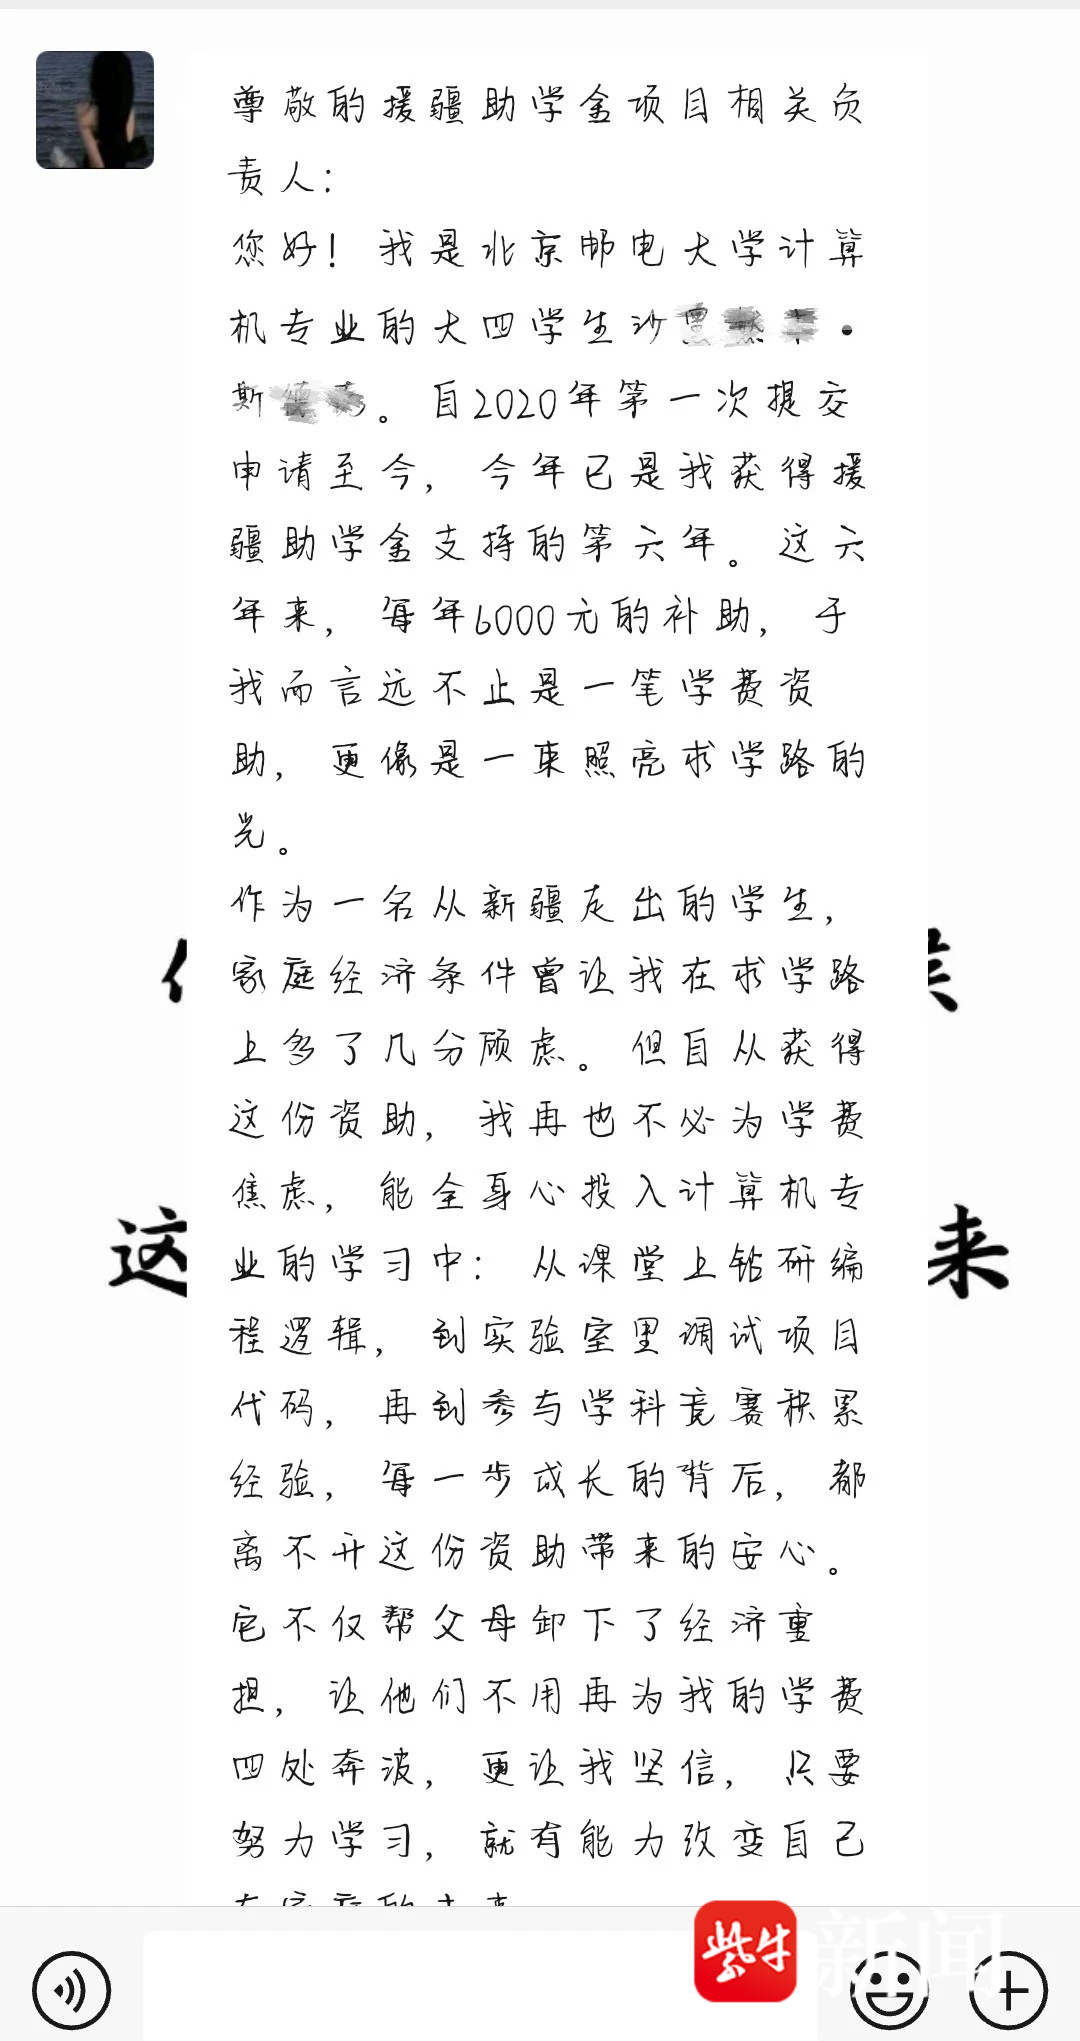 尊敬的援疆助学金项目相关负
责人：
您好！我是北京邮电大学计算
机专业的大四学生沙
斯 。自2020年第一次提交
申请至今，今年已是我获得援
疆助学金支持的第六年。这六
年来，每年6000元的补助，于
我而言远不止是一笔学费资
助，更像是一束照亮求学路的
光。
作为一名从新疆走出的学生，
家庭经济条件曾让我在求学路
上多了几分顾虑。但自从获得
这份资助，我再也不必为学费
焦虑，能全身心投入计算机专
业的学习中：从课堂上钻研编
程逻辑，到实验室里调试项目
代码，再到参与学科竞赛积累
经验，每一步成长的背后，都
离不开这份资助带来的安心。
它不仅帮父母卸下了经济重
担，让他们不用再为我的学费
四处奔波，更让我坚信，只要
努力学习，就有能力改变自己
这
来
紫牛
新闻